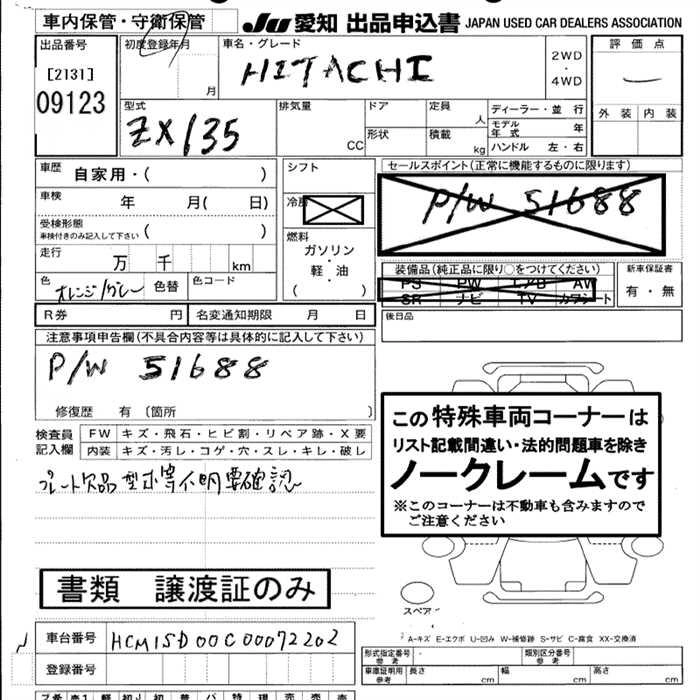 車内保管・守衛保管
JU 愛知 出品申込書 JAPAN USED CAR DEALERS ASSOCIATION
出品番号
[2131]
09123
初度登録年月
月
車名・グレード
HITACHI
2WD
・
4WD
評価点
外装 内装
型式
ZX135
排気量
CC
ドア
形状
定員
人
積載
kg
ディーラー・並行
モデル年式 年
ハンドル 左・右
車歴 自家用・( )
車検 年 月( 日)
受検形態
車検付きのみ記入して下さい ( )
走行 万 千 km
色 オレンジ/グレー 色替 色コード
シフト
冷房
燃料
ガソリン
・
軽・油
( )
セールスポイント(正常に機能するものに限ります)
P/W 51688
装備品(純正品に限り○をつけてください)
PS PW エアB AW
SR ナビ TV カワシート
新車保証書
有・無
R券 円 名変通知期限 月 日
後日品
注意事項申告欄(不具合内容等は具体的に記入して下さい)
P/W 51688
修復歴 有 〔箇所 〕
検査員記入欄
FW キズ・飛石・ヒビ割・リペア跡・X要
内装 キズ・汚レ・コゲ・穴・スレ・キレ・破レ
プレート欠品 型式等不明要確認
この特殊車両コーナーは
リスト記載間違い・法的問題車を除き
ノークレームです
※このコーナーは不動車も含みますので
ご注意ください
書類 譲渡証のみ
スペア
A-キズ E-エクボ U-凹み W-補修跡 S-サビ C-腐食 XX-交換済
車台番号 HCM1SD00C00072202
登録番号
形式指定番号 参考
類別区分番号 参考
車庫証明用 参考 長さ cm 幅 cm 高さ cm